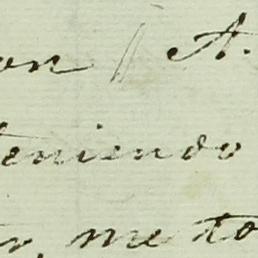 on / A.
teniendo
r, me to